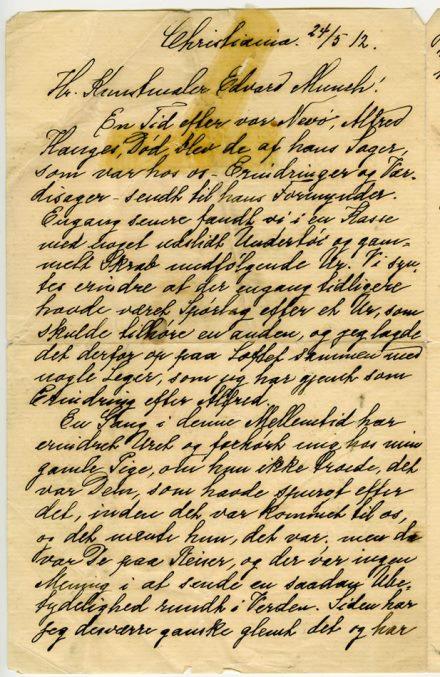 Christiania. 24/5 12.
Hr. Kunstmaler Edvard Munch!
En Tid efter vor Nevö, Alfred
Hauges, Död, blev de af hans Sager,
som var hos os - Erindringer og Vær-
disager - sendt til hans Formynder.
Engang senere fandt vi i en Kasse
med noget udslidt Undertöi og gam-
melt Skrab medfölgende Ur. Vi syn-
tes erindre at der engang tidligere
havde været Spörsmaal efter et Ur, som
skulde tilhöre en anden, og jeg lagde
det derfor op paa Loftet sammen med
nogle Töger, som jeg har gjemt som
Erindring efter Alfred.
En Gang i denne Mellemtid har
erindret Uret og forhört mig hos min
gamle Pige, om hun ikke troede, det
var Dem, som havde spurgt efter
det, inden det var kommet til os,
og det mente hun, det var. men da
var De paa Reiser, og der var ingen
Mening i at sende en saadan Ube-
tydelighed rundt i Verden. Siden har
jeg desværre ganske glemt det og har